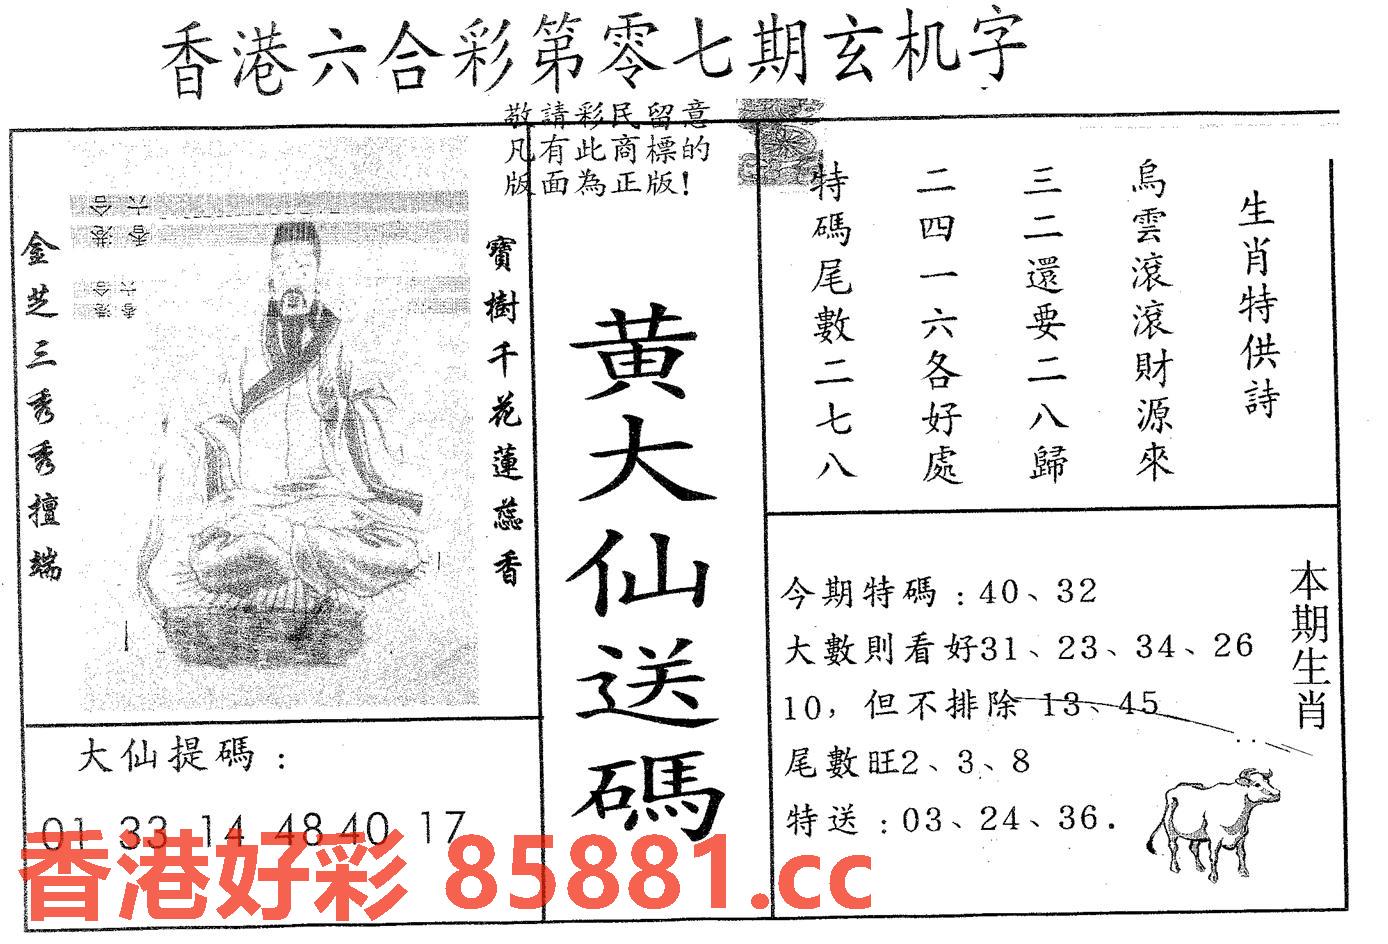 香港六合彩第零七期玄机字
敬請彩民留意
凡有此商標的
版面為正版!
金芝三秀秀擅端
寶樹千花蓮蕊香
六合
香港
六合
香港
黄大仙送碼
生肖特供詩
烏雲滾滾財源來
三二還要二八歸
二四一六各好處
特碼尾數二七八
今期特碼:40、32
大數則看好31、23、34、26
10,但不排除 13、45
尾數旺2、3、8
特送:03、24、36.
本期生肖
大仙提碼:
01 33 14 48 40 17
香港好彩 85881.cc